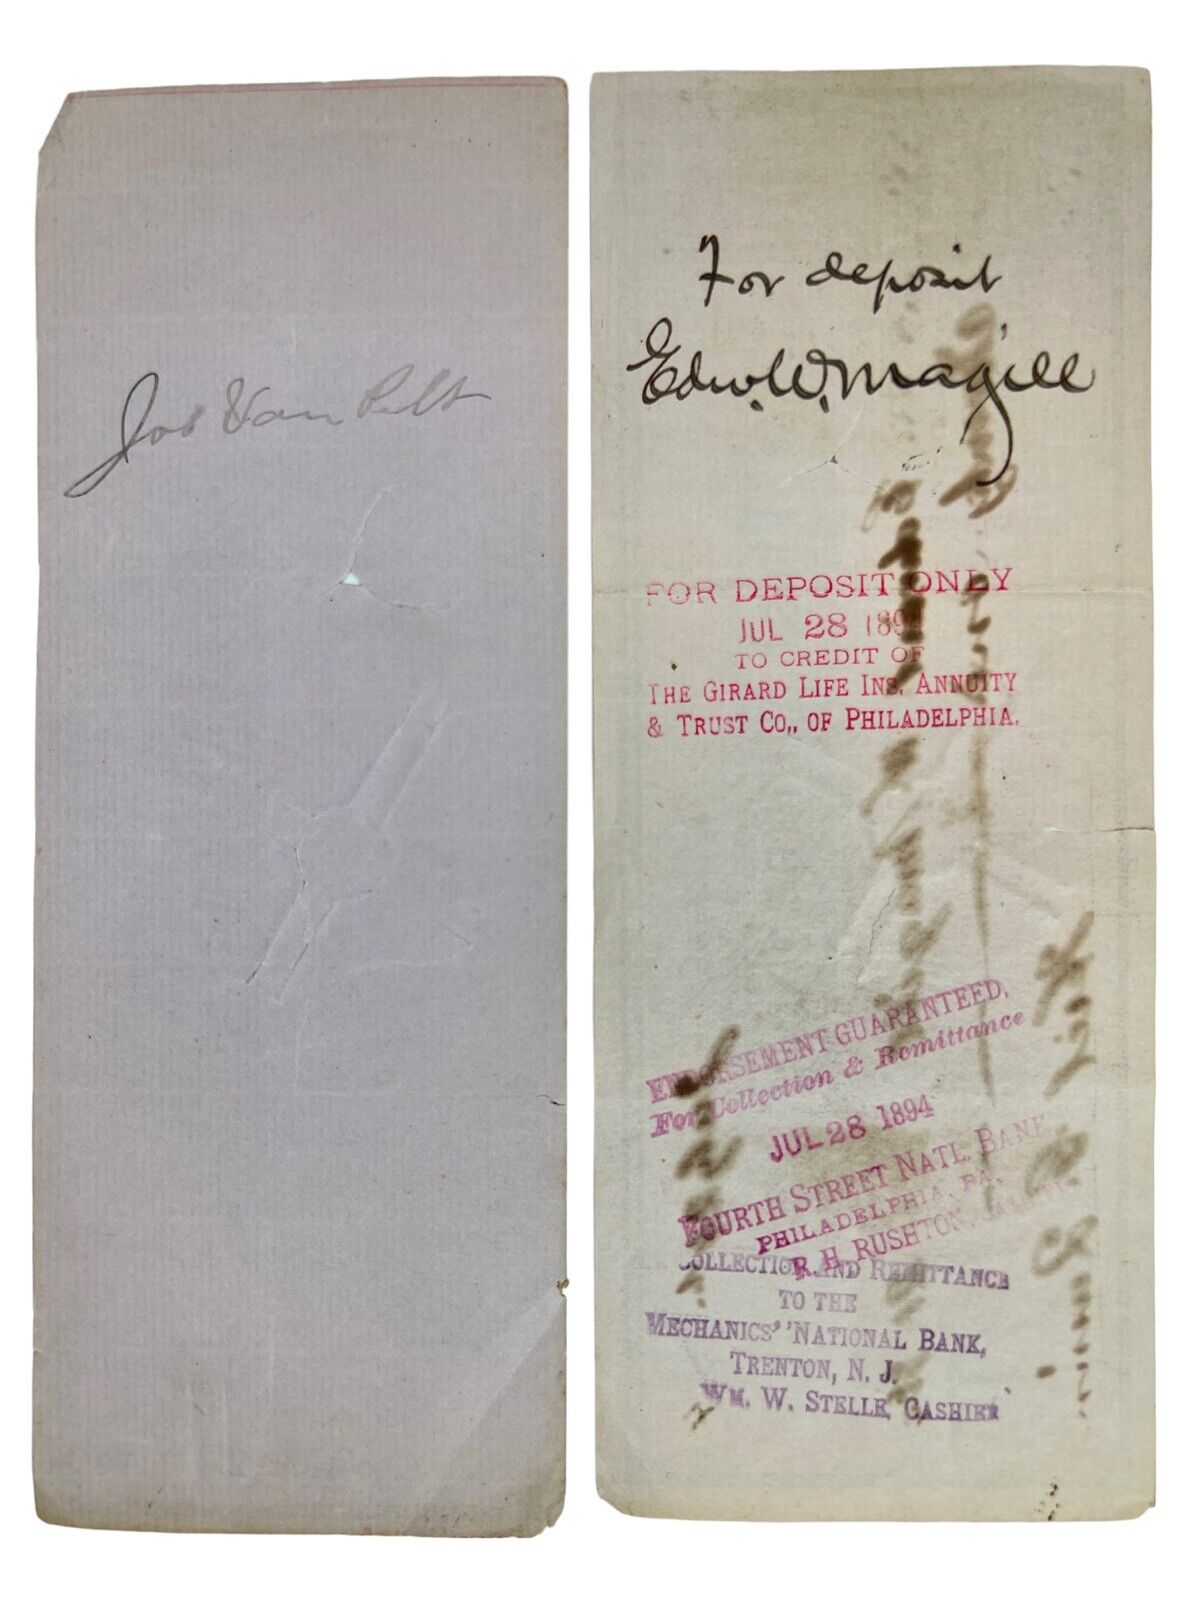 Jos Van Pelt
For deposit
Edw. W. Magill
FOR DEPOSIT ONLY
JUL 28 1894
TO CREDIT OF
THE GIRARD LIFE INS. ANNUITY
& TRUST CO., OF PHILADELPHIA.
ENDORSEMENT GUARANTEED,
For Collection & Remittance
JUL 28 1894
FOURTH STREET NATL. BANK
PHILADELPHIA, PA.
R. H. RUSHTON,
COLLECTION AND REMITTANCE
TO THE
MECHANICS' NATIONAL BANK,
TRENTON, N. J.
WM. W. STELLE, CASHIER